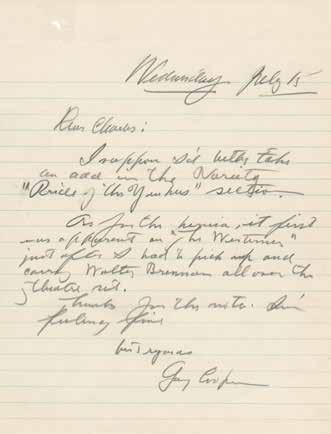 Wednesday July 15
Dear Charles:
I suppose I'd better take
an add in the Variety
"Pride of the Yankees" section.
As for the hernia, it first
was apparent on "The Westerner"
just after I had to pick up and
carry Walter Brennan all over the
theatre set.
Thanks for the note. I'm
feeling fine
best regards
Gary Cooper